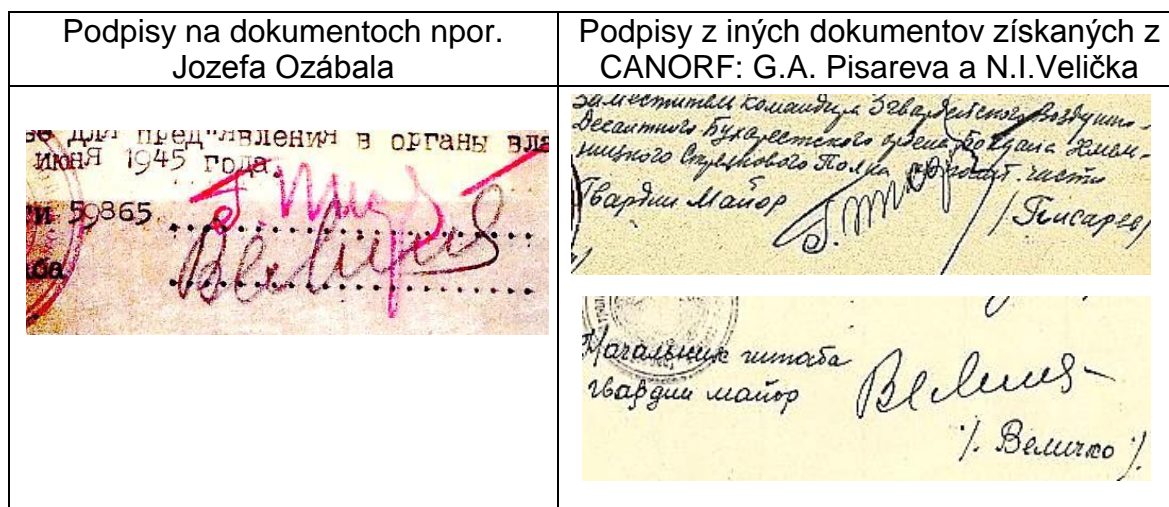 Podpisy na dokumentoch npor.
Jozefa Ozábala
Podpisy z iných dokumentov získaných z
CANORF: G.A. Pisareva a N.I.Velička
для пред"явления в органы вла
июня 1945 года.
59865
Заместитель командира 3 гвардейского Воздушно-
Десантного Бухарестского ордена Богдана Хмель-
ницкого Стрелкового Полка по полит. части
Гвардии Майор
/Писарев/
Начальник штаба
гвардии майор
/. Величко ./